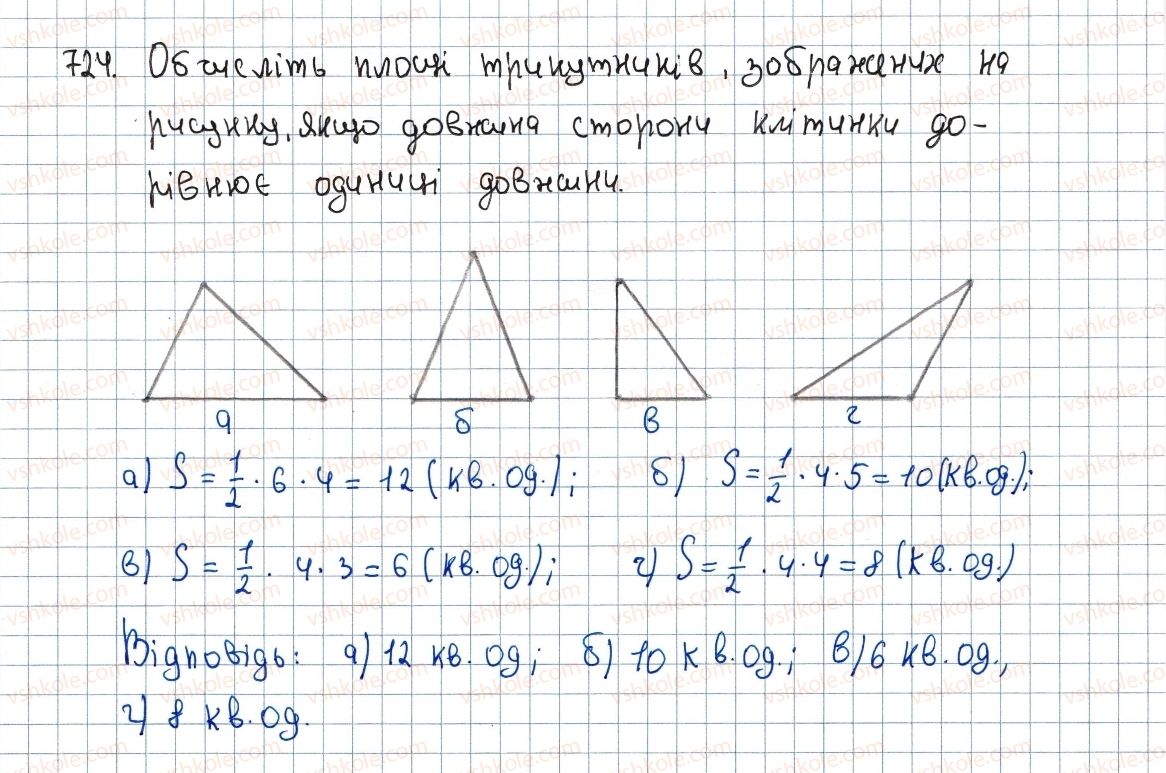 724. Обчисліть площі трикутників, зображених на
рисунку, якщо довжина сторони клітинки до-
рівнює одиниці довжини.
а б в г
а) S = 1/2 · 6 · 4 = 12 (кв. од.); б) S = 1/2 · 4 · 5 = 10 (кв. од.);
в) S = 1/2 · 4 · 3 = 6 (кв. од.); г) S = 1/2 · 4 · 4 = 8 (кв. од.)
Відповідь: а) 12 кв. од; б) 10 кв. од.; в) 6 кв. од.,
г) 8 кв. од.
vshkole.com